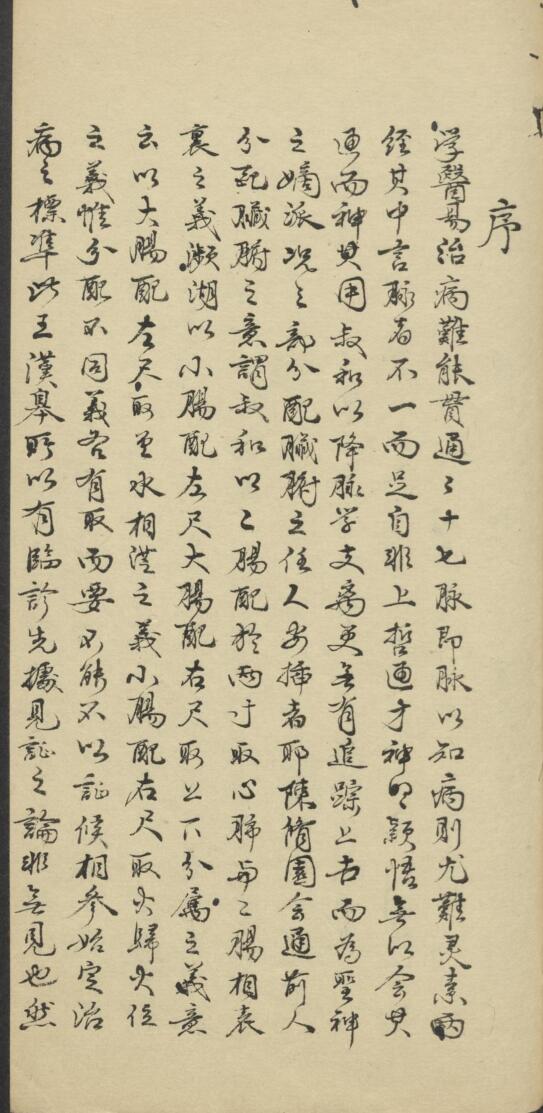 序
学醫易治病難能貫通二十七脉即脉以知病則尤難灵素兩
經其中言脉者不一而足自非上哲通才神明穎悟無以会其
通而神其用叔和以降脉学支离更無有追踪上古而為聖神
之嫡派况之部分配臟腑之任人安插者耶陳脩園会通前人
分配臟腑之意謂叔和以二腸配於兩寸取心肺与二腸相表
裏之義瀕湖以小腸配左尺大腸配右尺取上下分属之義意
云以大腸配左尺取金水相涵之義小腸配右尺取火歸火位
之義惟分配不同義各有取而要不能不以証候相參始定治
病之標準此王漢皋所以有臨診先據見証之論非無見也然